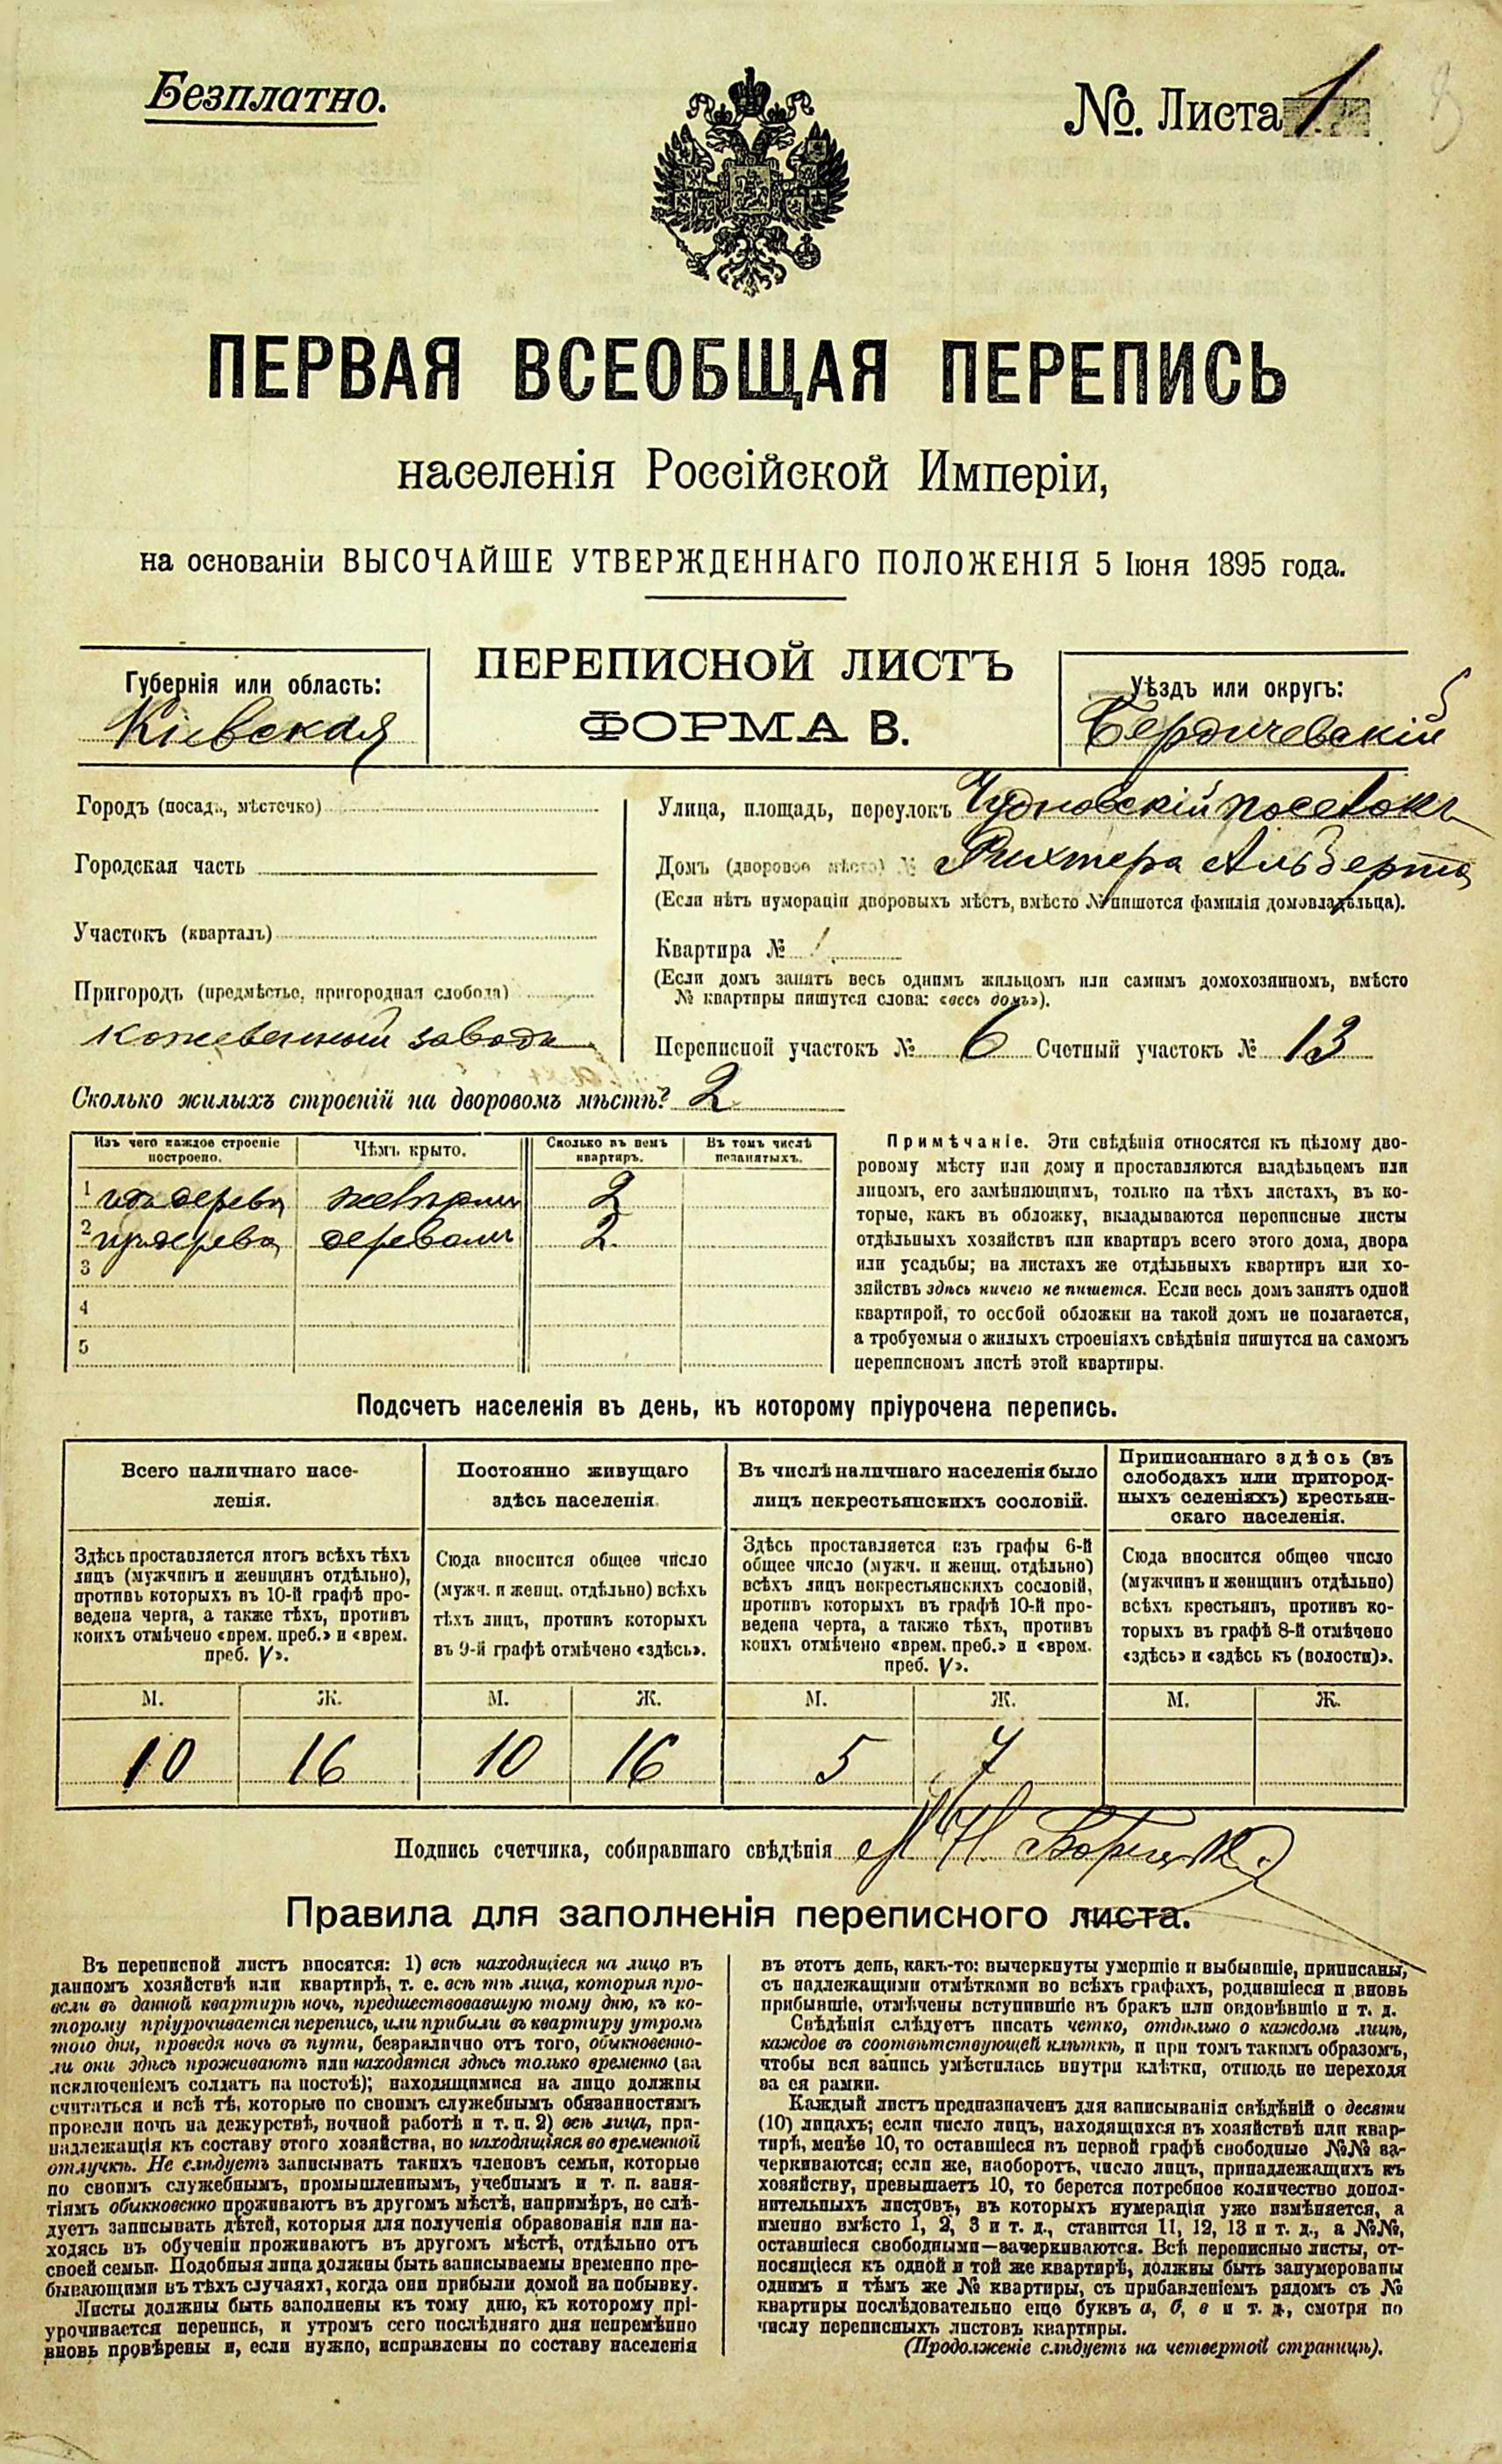 Безплатно.
№. Листа 1
ПЕРВАЯ ВСЕОБЩАЯ ПЕРЕПИСЬ
населенія Россійской Имперіи,
на основаніи ВЫСОЧАЙШЕ УТВЕРЖДЕННАГО ПОЛОЖЕНІЯ 5 Іюня 1895 года.
Губернія или область:
Кіевская
ПЕРЕПИСНОЙ ЛИСТЪ
ФОРМА В.
Уѣздъ или округъ:
Бердичевскій
Городъ (посадъ, мѣстечко)
Городская часть
Участокъ (кварталъ)
Пригородъ (предмѣстье, пригородная слобода)
кожевенный заводъ
Улица, площадь, переулокъ Чудновскій поселокъ
Домъ (дворовое мѣсто) № Рихтера Альберта
(Если нѣтъ нумораціи дворовыхъ мѣстъ, вмѣсто № пишотся фамилія домовладѣльца).
Квартира № 1
(Если домъ занятъ весь однимъ жильцомъ или самимъ домохозяиномъ, вмѣсто
№ квартиры пишутся слова: «весь домъ»).
Переписной участокъ № 6 Счетный участокъ № 13
Сколько жилыхъ строеній на дворовомъ мѣстѣ? 2
Изъ чего каждое строеніе построено.
Чѣмъ крыто.
Сколько въ немъ квартиръ.
Въ томъ числѣ незанятыхъ.
1 изъ дерева 2
2 изъ дерева деревомъ 2
3
4
5
Примѣчаніе. Эти свѣдѣнія относятся къ цѣлому дво-
ровому мѣсту или дому и проставляются владѣльцемъ или
лицомъ, его замѣняющимъ, только на тѣхъ листахъ, въ ко-
торые, какъ въ обложку, вкладываются переписные листы
отдѣльныхъ хозяйствъ или квартиръ всего этого дома, двора
или усадьбы; на листахъ же отдѣльныхъ квартиръ или хо-
зяйствъ здѣсь ничего не пишется. Если весь домъ занятъ одной
квартирой, то особой обложки на такой домъ не полагается,
а требуемыя о жилыхъ строеніяхъ свѣдѣнія пишутся на самомъ
переписномъ листѣ этой квартиры.
Подсчетъ населенія въ день, къ которому пріурочена перепись.
Всего наличнаго насе-
ленія.
Здѣсь проставляется итогъ всѣхъ тѣхъ
лицъ (мужчинъ и женщинъ отдѣльно),
противъ которыхъ въ 10-й графѣ про-
ведена черта, а также тѣхъ, противъ
коихъ отмѣчено «врем. преб.» и «врем.
преб. V».
Постоянно живущаго
здѣсь населенія.
Сюда вносится общее число
(мужч. и женщ. отдѣльно) всѣхъ
тѣхъ лицъ, противъ которыхъ
въ 9-й графѣ отмѣчено «здѣсь».
Въ числѣ наличнаго населенія было
лицъ некрестьянскихъ сословій.
Здѣсь проставляется изъ графы 6-й
общее число (мужч. и женщ. отдѣльно)
всѣхъ лицъ некрестьянскихъ сословій,
противъ которыхъ въ графѣ 10-й про-
ведена черта, а также тѣхъ, противъ
коихъ отмѣчено «врем. преб.» и «врем.
преб. V».
Приписаннаго здѣсь (въ
слободахъ или пригород-
ныхъ селеніяхъ) крестьян-
скаго населенія.
Сюда вносится общее число
(мужчинъ и женщинъ отдѣльно)
всѣхъ крестьянъ, противъ ко-
торыхъ въ графѣ 8-й отмѣчено
«здѣсь» и «здѣсь къ (волости)».
М. Ж. М. Ж. М. Ж. М. Ж.
10 16 10 16 5 7
Подпись счетчика, собиравшаго свѣдѣнія
Правила для заполненія переписного листа.
Въ переписной листъ вносятся: 1) всѣ находящіеся на лицо въ
данномъ хозяйствѣ или квартирѣ, т. е. всѣ тѣ лица, которыя про-
вели въ данной квартирѣ ночь, предшествовавшую тому дню, къ ко-
торому пріурочивается перепись, или прибыли въ квартиру утромъ
того дня, проведя ночь въ пути, безразлично отъ того, обыкновенно-
ли они здѣсь проживаютъ или находятся здѣсь только временно (за
исключеніемъ солдатъ на постоѣ); находящимися на лицо должны
считаться и всѣ тѣ, которые по своимъ служебнымъ обязанностямъ
провели ночь на дежурствѣ, ночной работѣ и т. п. 2) всѣ лица, при-
надлежащія къ составу этого хозяйства, но находящіяся во временной
отлучкѣ. Не слѣдуетъ записывать такихъ членовъ семьи, которые
по своимъ служебнымъ, промышленнымъ, учебнымъ и т. п. заня-
тіямъ обыкновенно проживаютъ въ другомъ мѣстѣ, напримѣръ, не слѣ-
дуетъ записывать дѣтей, которыя для полученія образованія или на-
ходясь въ обученіи проживаютъ въ другомъ мѣстѣ, отдѣльно отъ
своей семьи. Подобныя лица должны быть записываемы временно пре-
бывающими въ тѣхъ случаяхъ, когда они прибыли домой на побывку.
Листы должны быть заполнены къ тому дню, къ которому прі-
урочивается перепись, и утромъ сего послѣдняго дня непремѣнно
вновь провѣрены и, если нужно, исправлены по составу населенія
въ этотъ день, какъ-то: вычеркнуты умершіе и выбывшіе, приписаны,
съ надлежащими отмѣтками во всѣхъ графахъ, родившіеся и вновь
прибывшіе, отмѣчены вступившіе въ бракъ или овдовѣвшіе и т. д.
Свѣдѣнія слѣдуетъ писать четко, отдѣльно о каждомъ лицѣ,
каждое въ соотвѣтствующей клѣткѣ, и при томъ такимъ образомъ,
чтобы вся запись умѣстилась внутри клѣтки, отнюдь не переходя
за ея рамки.
Каждый листъ предназначенъ для записыванія свѣдѣній о десяти
(10) лицахъ; если число лицъ, находящихся въ хозяйствѣ или квар-
тирѣ, менѣе 10, то оставшіеся въ первой графѣ свободные №№ за-
черкиваются; если же, наоборотъ, число лицъ, принадлежащихъ къ
хозяйству, превышаетъ 10, то берется потребное количество допол-
нительныхъ листовъ, въ которыхъ нумерація уже измѣняется, а
именно вмѣсто 1, 2, 3 и т. д., ставится 11, 12, 13 и т. д., а №№,
оставшіеся свободными—зачеркиваются. Всѣ переписные листы, от-
носящіеся къ одной и той же квартирѣ, должны быть занумерованы
однимъ и тѣмъ же № квартиры, съ прибавленіемъ рядомъ съ №
квартиры послѣдовательно еще буквъ а, б, в и т. д., смотря по
числу переписныхъ листовъ квартиры.
(Продолженіе слѣдуетъ на четвертой страницѣ).